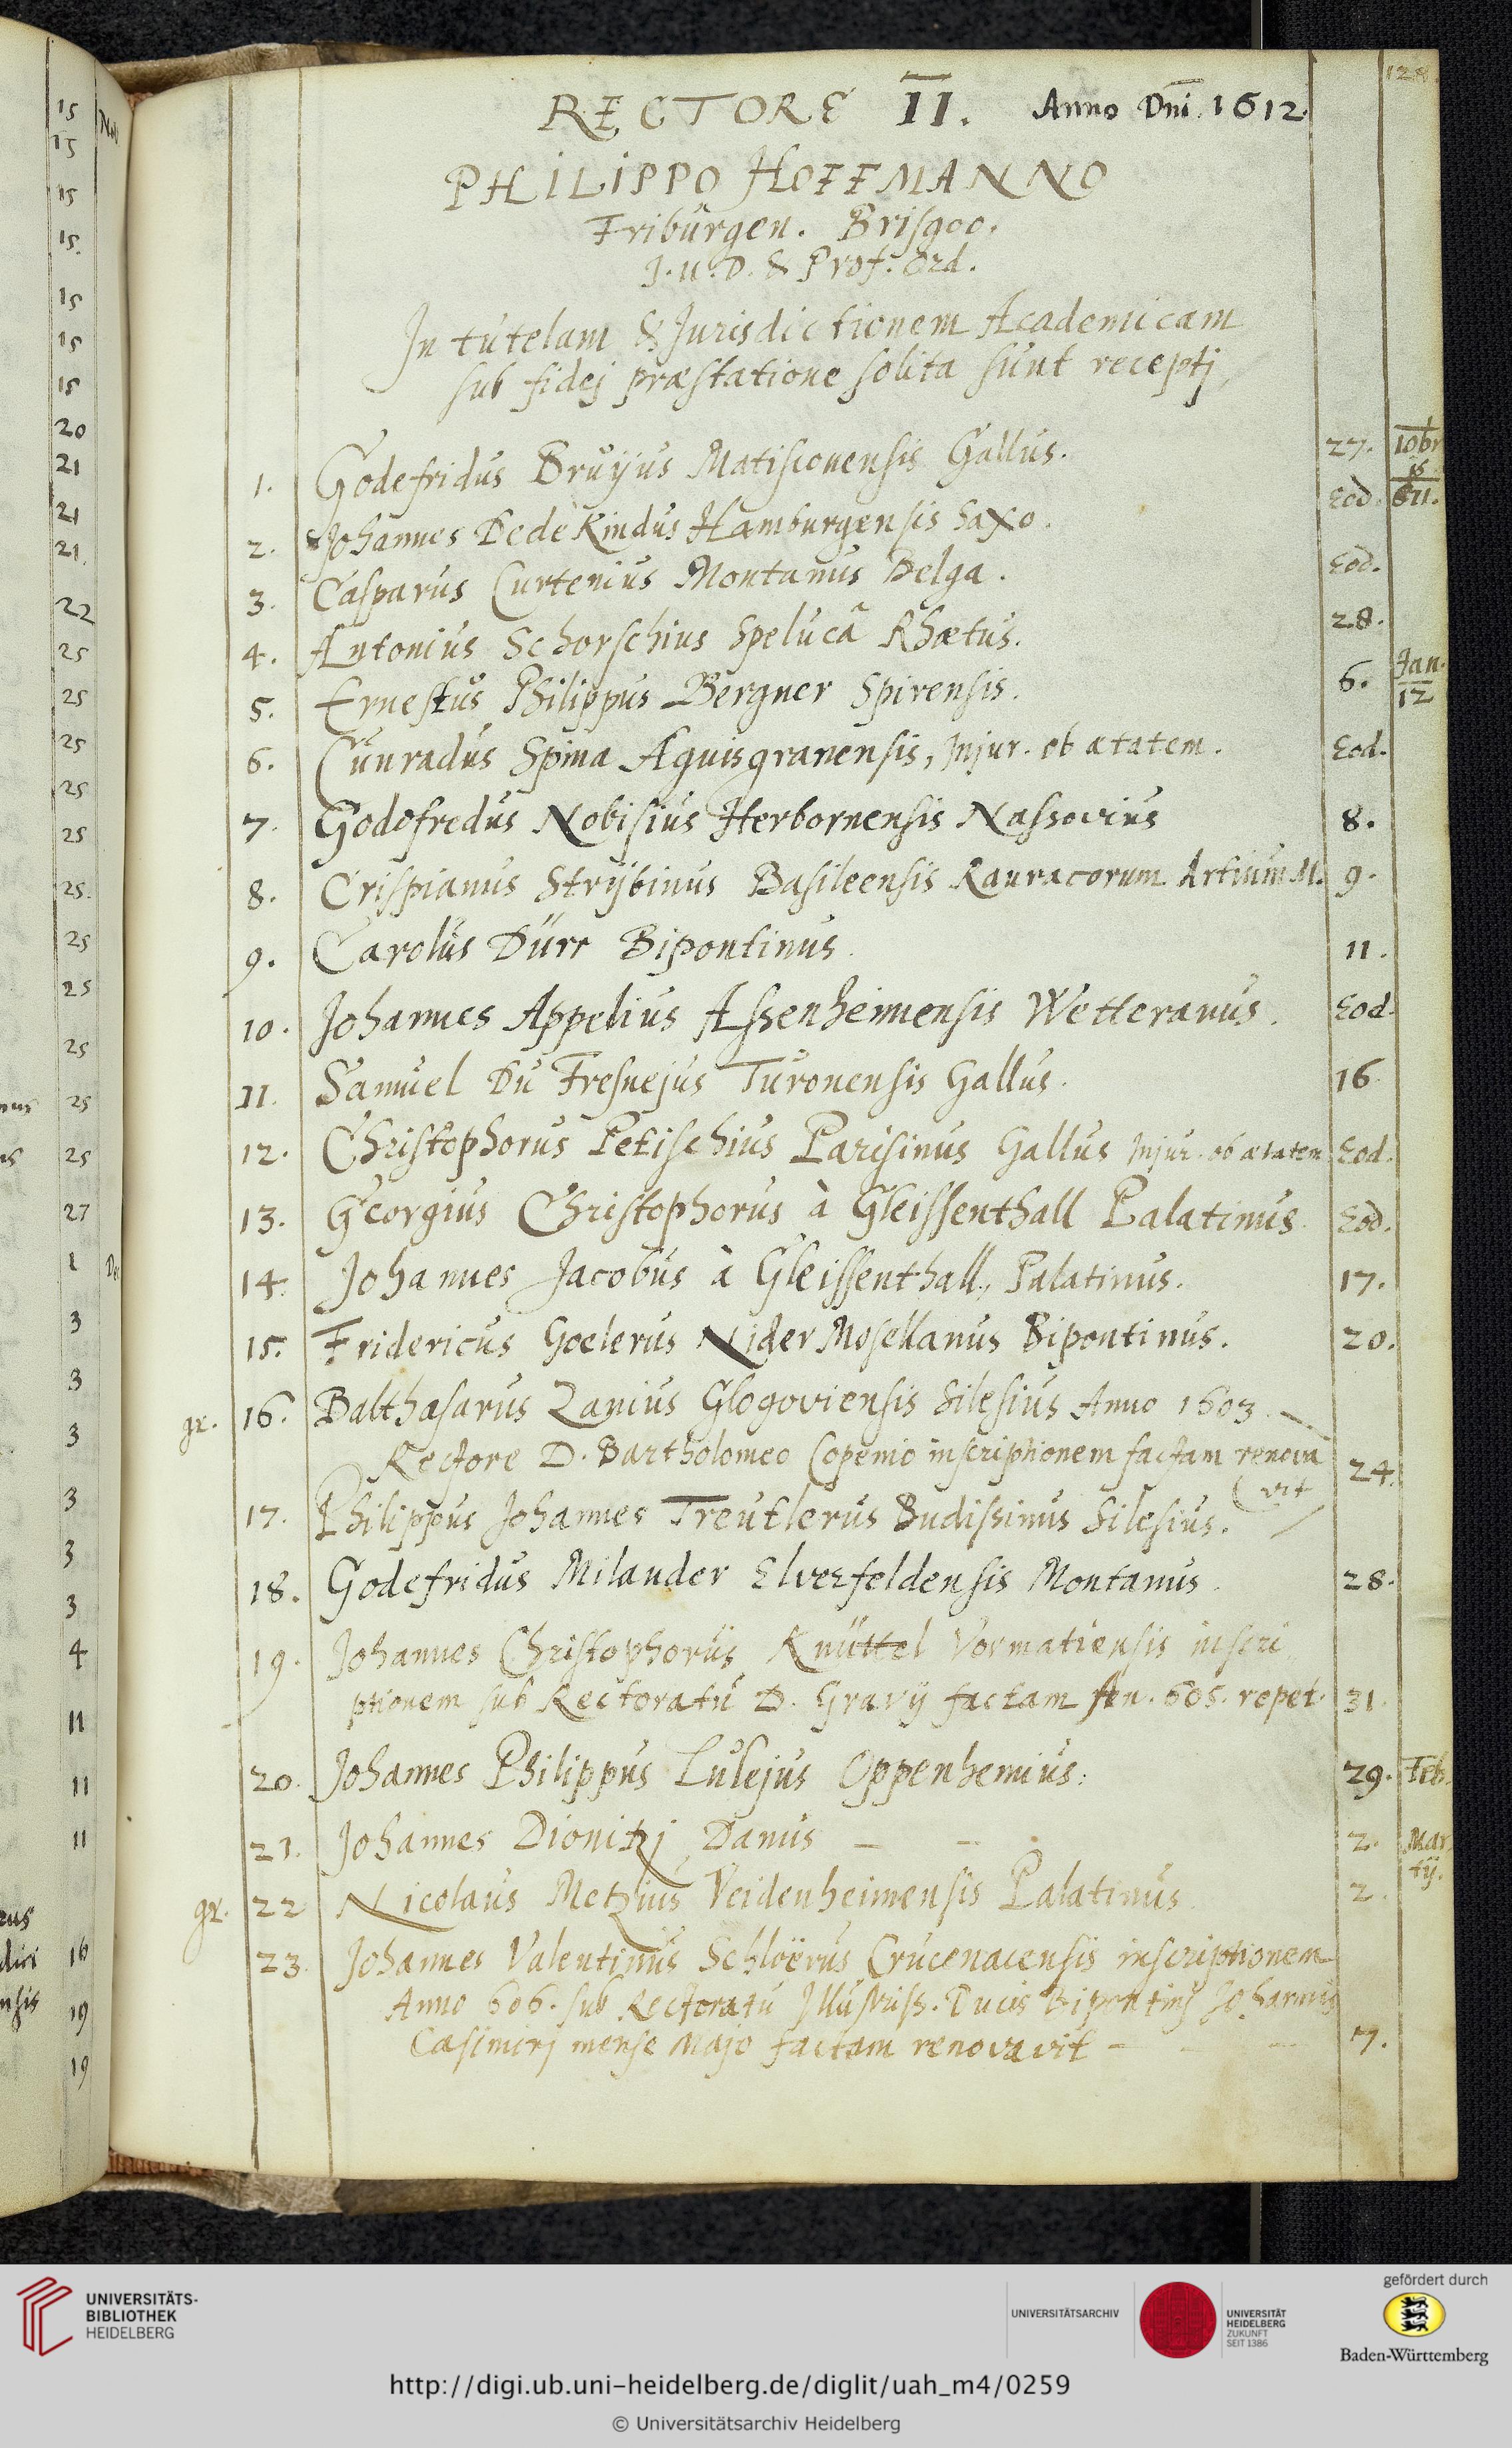 128.
RECTORE II. Anno Dni. 1612.
PHILIPPO HOFFMANNO
Friburgen. Brisgoo.
J. u. D. & Prof. Ord.
In tutelam & Jurisdictionem Academicam
sub fidej præstatione solita sunt receptj
1. Godefridus Bruyus Matisconensis Gallus. 27. 10br
2. Johannes Dedekindus Hamburgensis Saxo. Eod. 1611.
3. Casparus Curtenius Montanus Belga. Eod.
4. Antonius Schorschius Spelucâ Rhætus. 28.
5. Ernestus Philippus Bergner Spirensis. 6. Jan. 12
6. Cunradus Spina Aquisgranensis, Injur. ob ætatem. Eod.
7. Godofredus Nobisius Herbornensis Nassovius 8.
8. Crispianus Strybinus Basileensis Rauracorum Artium M. 9.
9. Carolus Dürr Bipontinus. 11.
10. Johannes Appelius Assenheimensis Wetteranus. Eod.
11. Samuel Du Fresnejus Turonensis Gallus. 16
12. Christophorus Petischius Parisinus Gallus Injur. ob ætatem Eod.
13. Georgius Christophorus à Gleissenthall Palatinus. Eod.
14. Johannes Jacobus à Gleissenthall, Palatinus. 17.
15. Fridericus Goelerus NiderMosellanus Bipontinus. 20.
gr. 16. Balthasarus Zanius Glogoviensis Silesius Anno 1603.
Rectore D. Bartholomeo Copenio inscriptionem factam renova
(vit 24.
17. Philippus Johannes Treutlerus Budissinus Silesius.
18. Godefridus Milander Elverfeldensis Montanus. 28.
19. Johannes Christophorus Knüttel Vormatiensis inscri
ptionem sub Rectoratu D. Gravij factam An. 605. repet. 31.
20. Johannes Philippus Lulejus Oppenhemius. 29. Feb.
21. Johannes Dionitzj Danus — — . 2. Mar
tij.
gr. 22 Nicolaus Metzius Veidenheimensis Palatinus. 2.
23. Johannes Valentinus Schloërus Crucenacensis inscriptionem
Anno 606. sub Rectoratu Illustriss. Ducis Bipontinj Johannis
Casimirj mense Majo factam renovavit — — — 7.
15
15
15
15.
15
15
15
20
21
21
21.
22
25
25
25
25
25
25.
25
25
25
25
25
27
1
3
3
3
3
3
3
4
11
11
11
16
19
19
UNIVERSITÄTS-
BIBLIOTHEK
HEIDELBERG
UNIVERSITÄTSARCHIV
UNIVERSITÄT
HEIDELBERG
ZUKUNFT
SEIT 1386
gefördert durch
Baden-Württemberg
http://digi.ub.uni-heidelberg.de/diglit/uah_m4/0259
© Universitätsarchiv Heidelberg